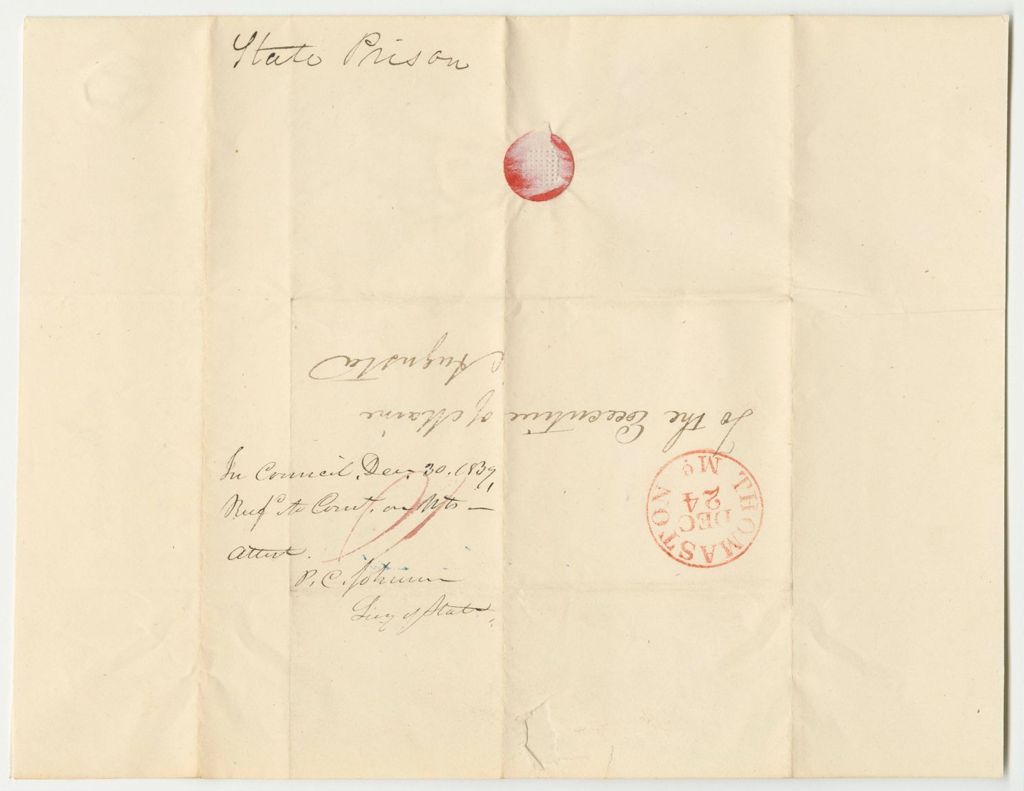 State Prison
To the Executive of Maine
Augusta
THOMASTON Me
DEC
24
In Council, Dec. 30. 1839,
Ref'd to Comt. on Wts —
Attest.
P. C. Johnson
Secy of State.